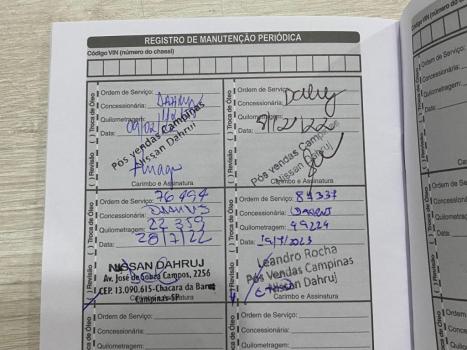 REGISTRO DE MANUTENÇÃO PERIÓDICA
Código VIN (número do chassi)
( ) Revisão ( ) Troca de Óleo
Ordem de Serviço:
Concessionária:
Quilometragem:
Data: 09/02/
Pós vendas Campinas
Nissan Dahruj
Carimbo e Assinatura
( ) Revisão ( ) Troca de Óleo
Ordem de Serviço:
Concessionária:
Quilometragem:
Data:
Pós vendas Campinas
Nissan Dahruj
Carimbo e Assinatura
( ) Revisão ( ) Troca de Óleo
Ordem de Serviço: 76494
Concessionária:
Quilometragem: 22 359
Data: 20/7/22
NISSAN DAHRUJ
Av. José de Souza Campos, 2256
CEP. 13.090-615-Chácara da Barra
Campinas-SP
( ) Revisão ( ) Troca de Óleo
Ordem de Serviço: 84337
Concessionária:
Quilometragem: 49224
Data: 19/7/2023
Leandro Rocha
Pós Vendas Campinas
Nissan Dahruj
Carimbo e Assinatura
Troca de Óleo
Ordem de Serviço:
Concessionária:
Quilometragem:
Troca de Óleo
Ordem de Serviço:
Concessionária:
Quilometragem: